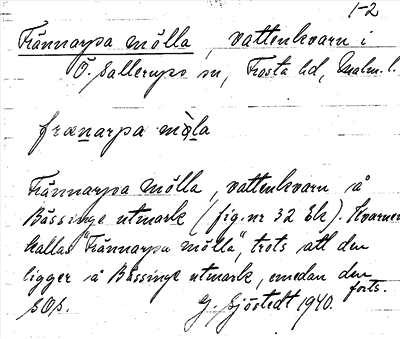 1-2
Frännarpa mölla, vattenkvarn i
Ö. Sallerups sn, Frosta hd, Malm. l.
frænarpa mò̤la
Frännarpa mölla, vattenkvarn å
Bässinge utmark (fig. nr 32 Ek). Kvarnen
kallas "Frännarpa mölla", trots att den
ligger å Bässinge utmark, emedan den
forts.
G. Sjöstedt 1940.